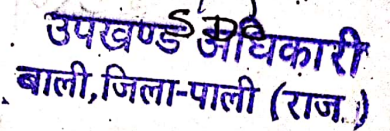 S D O
उपखण्ड अधिकारी
बाली,जिला-पाली (राज.)